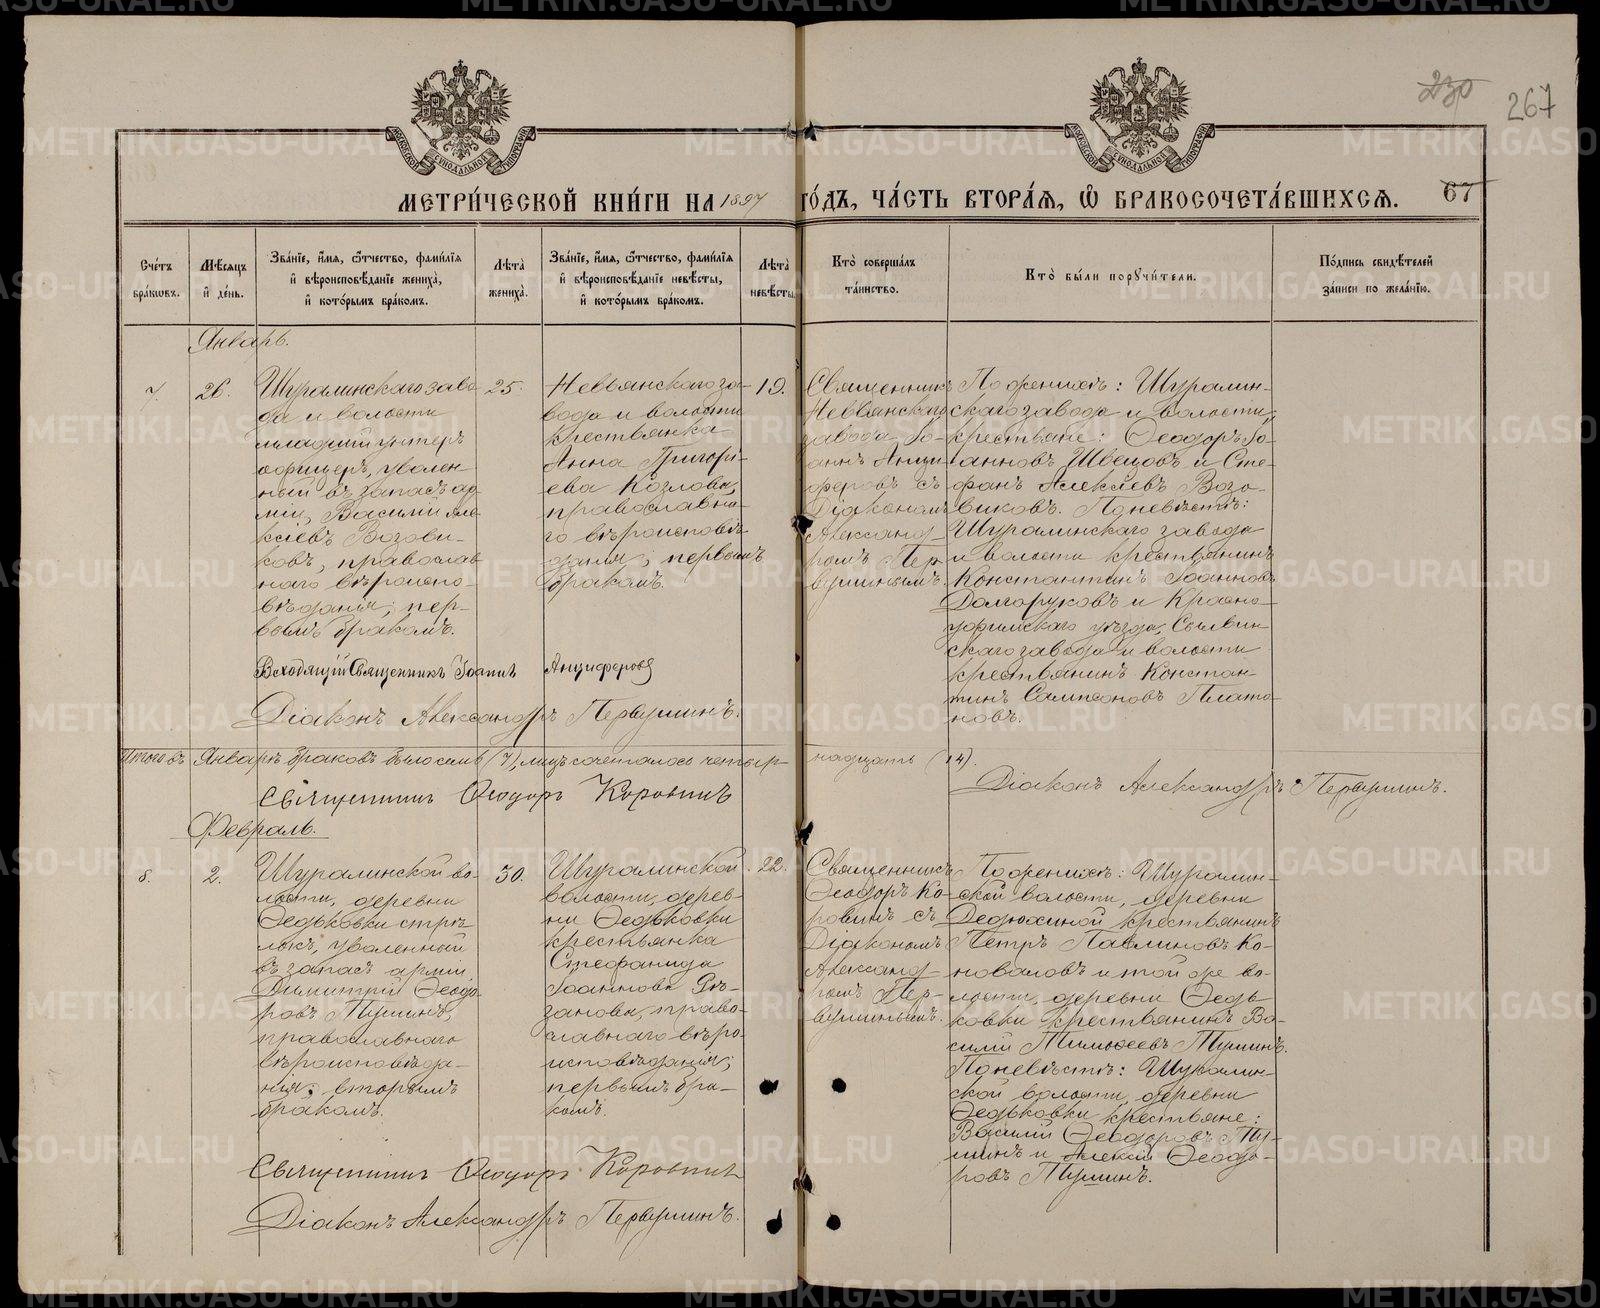 230
267
МЕТРИ́ЧЕСКОЙ КНИ́ГИ НА 1897 ГО́ДЪ, ЧА́СТЬ ВТОРА́Я, Ѽ БРАКОСОЧЕТА́ВШИХСЯ.
67
Сче́тъ
бра́ковъ.
Мѣ́сяцъ
и҆ де́нь.
Зва́нїе, и҆́мя, ѻ҆́тчество, фамилїя
и҆ вѣроисповѣ́данїе жениха̀,
и҆ кото́рымъ бра́комъ.
Лѣ́та
жениха̀.
Зва́нїе, и҆́мя, ѻ҆́тчество, фамилїя
и҆ вѣроисповѣ́данїе невѣ́сты,
и҆ кото́рымъ бра́комъ.
Лѣ́та
невѣ́сты.
Кто̀ соверша́лъ
та́инство.
Кто̀ бы́ли порꙋчи́тели.
По́дпись свидѣ́телей
за́писи по жела́нїю.
Январь.
7.
26.
Шуралинскаго заво-
да и волости
младшій унтеръ
офицеръ, уволен-
ный въ запасъ ар-
міи, Василій Але-
ксіевъ Возови-
ковъ, православ
наго вѣроиспо-
вѣданія; пер-
вымъ бракомъ.
25.
Невьянскаго за-
вода и волости
крестьянка
Анна Григорі-
ева Козлова,
православна-
го вѣроисповѣ-
данія; первымъ
бракомъ.
19.
Священникъ
Невьянскаго
завода Іо-
аннъ Анци-
феровъ съ
Діакономъ
Александ-
ромъ Пер-
вушинымъ.
По женихѣ: Шуралин-
скаго завода и волости,
крестьяне: Ѳеодоръ Іо-
анновъ Швецовъ и Сте-
фанъ Алексіевъ Возо-
виковъ. По невѣстѣ:
Шуралинскаго завода
и волости крестьянинъ
Константинъ Іоанновъ
Долгоруковъ и Красно-
уфимскаго уѣзда, Сылвин-
скаго завода и волости
крестьянинъ Констан-
тинъ Сампсоновъ Плато-
новъ.
Всходящій Священникъ Іоаннъ Анциферовъ
Діаконъ Александръ Первушинъ.
Итого въ Январѣ браковъ было семь (7), лицъ сочеталось четыр-
надцать (14).
Священникъ Ѳеодоръ Коровинъ
Діаконъ Александръ Первушинъ.
Февраль.
8.
2.
Шуралинской во-
лости, деревни
Ѳедьковки стрѣ-
локъ, уволенный
въ запасъ арміи
Димитрій Ѳеодо-
ровъ Пушинъ,
православнаго
вѣроисповѣда-
нія; вторымъ
бракомъ.
30.
Шуралинской
волости, дерев-
ни Ѳедьковки
крестьянка
Стефанида
Іоаннова Рѣ-
занова, право-
славнаго вѣро-
исповѣданія;
первымъ бра-
комъ.
22.
Священникъ
Ѳеодоръ Ко-
ровинъ съ
Діакономъ
Александ-
ромъ Пер-
вушинымъ.
По женихѣ: Шуралин-
ской волости, деревни
Дедюхиной крестьянинъ
Петръ Павлиновъ Ко-
новаловъ и той же во-
лости, деревни Ѳедь
ковки крестьянинъ Ва-
силій Тимоѳеевъ Пушинъ.
По невѣстѣ: Шуралин-
ской волости, деревни
Ѳедьковки крестьяне:
Василій Ѳеодоровъ Пу-
шинъ и Алексій Ѳеодо-
ровъ Пушинъ.
Священникъ Ѳеодоръ Коровинъ
Діаконъ Александръ Первушинъ.
METRIKI.GASO-URAL.RU